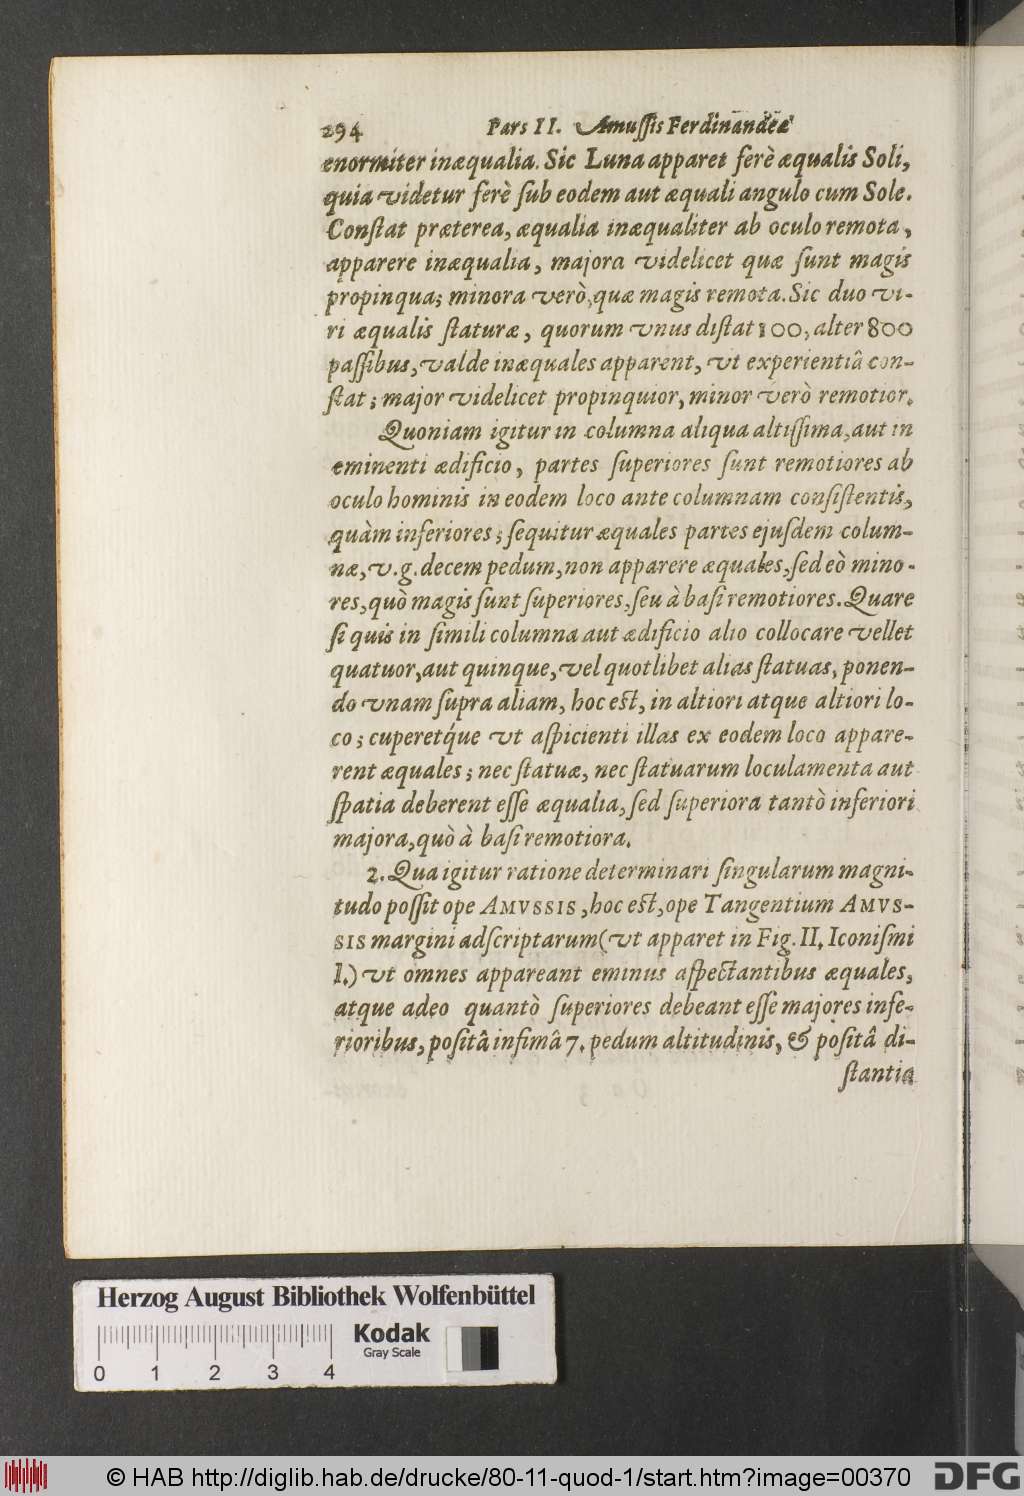 294 Pars II. Amuſſis Ferdinandeæ
enormiter inæqualia. Sic Luna apparet ferè æqualis Soli,
quia videtur ferè ſub eodem aut æquali angulo cum Sole.
Conſtat præterea, æqualia inæqualiter ab oculo remota,
apparere inæqualia, majora videlicet quæ ſunt magis
propinqua; minora verò, quæ magis remota. Sic duo vi-
ri æqualis ſtaturæ, quorum vnus diſtat 100, alter 800
paſſibus, valde inæquales apparent, vt experientiâ con-
ſtat; major videlicet propinquior, minor verò remotior.
Quoniam igitur in columna aliqua altiſſima, aut in
eminenti ædificio, partes ſuperiores ſunt remotiores ab
oculo hominis in eodem loco ante columnam conſiſtentis,
quàm inferiores; ſequitur æquales partes ejuſdem colum-
næ, v. g. decem pedum, non apparere æquales, ſed eò mino-
res, quò magis ſunt ſuperiores, ſeu à baſi remotiores. Quare
ſi quis in ſimili columna aut ædificio alio collocare vellet
quatuor, aut quinque, vel quotlibet alias ſtatuas, ponen-
do vnam ſupra aliam, hoc eſt, in altiori atque altiori lo-
co; cuperetq́ue vt aſpicienti illas ex eodem loco appare-
rent æquales; nec ſtatuæ, nec ſtatuarum loculamenta aut
ſpatia deberent eſſe æqualia, ſed ſuperiora tantò inferiori
majora, quò à baſi remotiora.
2. Qua igitur ratione determinari ſingularum magni-
tudo poſſit ope AMVSSIS, hoc eſt, ope Tangentium AMVS-
SIS margini adſcriptarum (vt apparet in Fig. II. Iconiſmi
I.) vt omnes appareant eminus aſpectantibus æquales,
atque adeo quantò ſuperiores debeant eſſe majores infe-
rioribus, poſitâ infimâ 7. pedum altitudinis, & poſitâ di-
ſtantia
Herzog August Bibliothek Wolfenbüttel
Kodak
Gray Scale
0 1 2 3 4
© HAB http://diglib.hab.de/drucke/80-11-quod-1/start.htm?image=00370
DFG